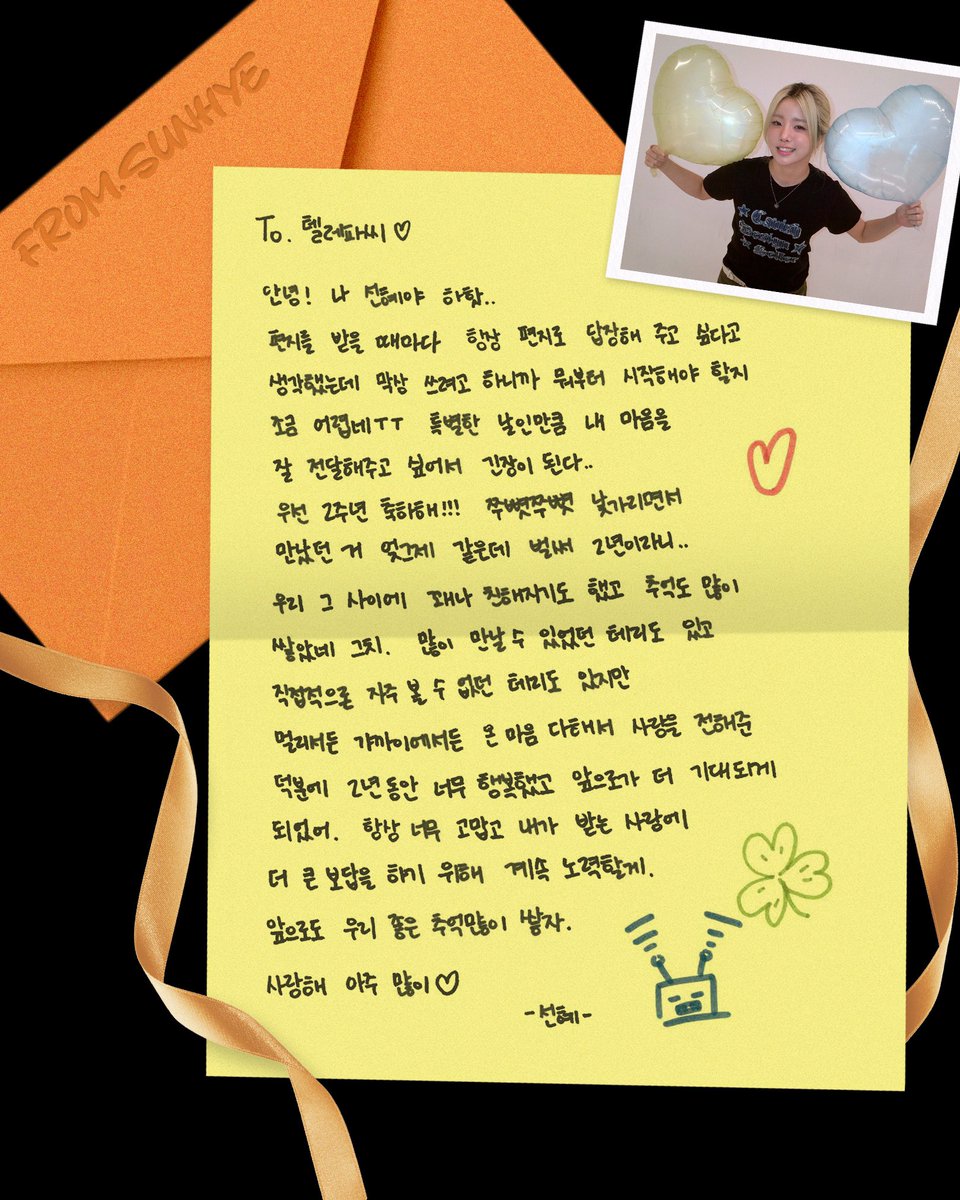 FROM. SUNHYE
To. 텔레파씨♡
안녕! 나 선혜야 하핫..
편지를 받을 때마다 항상 편지로 답장해 주고 싶다고
생각했는데 막상 쓰려고 하니까 뭐부터 시작해야 할지
조금 어렵네ㅜㅜ 특별한 날인만큼 내 마음을
잘 전달해주고 싶어서 긴장이 된다..
우선 2주년 축하해!!! 쭈뼛쭈뼛 낯가리면서
만났던 거 엊그제 같은데 벌써 2년이라니..
우리 그 사이에 꽤나 친해지기도 했고 추억도 많이
쌓았네 그치. 많이 만날 수 있었던 테미도 있고
직접적으로 자주 볼 수 없던 테미도 있지만
멀리서든 가까이에서든 온 마음 다해서 사랑을 전해준
덕분에 2년 동안 너무 행복했고 앞으로가 더 기대되게
되었어. 항상 너무 고맙고 내가 받는 사랑에
더 큰 보답을 하기 위해 계속 노력할게.
앞으로도 우리 좋은 추억많이 쌓자.
사랑해 아주 많이♡
-선혜-